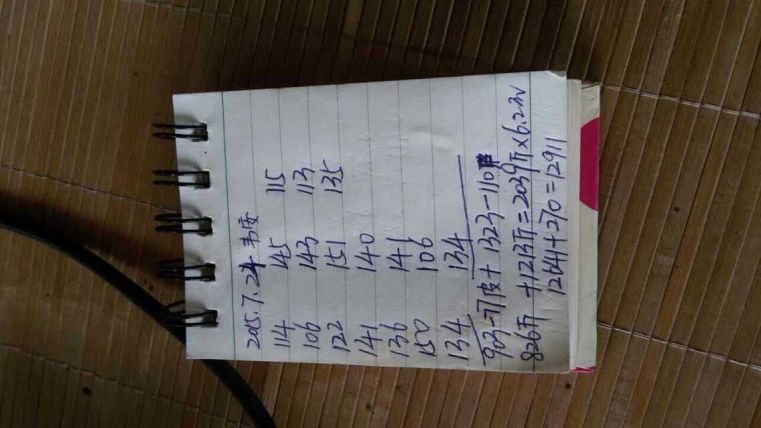 2015.7.24
114 145 115
106 143 113
122 151 135
141 140
136 141
150 106
134 134
903-77皮+1323-110皮
826斤+1213斤=2039斤×6.2元
12641+270=12911